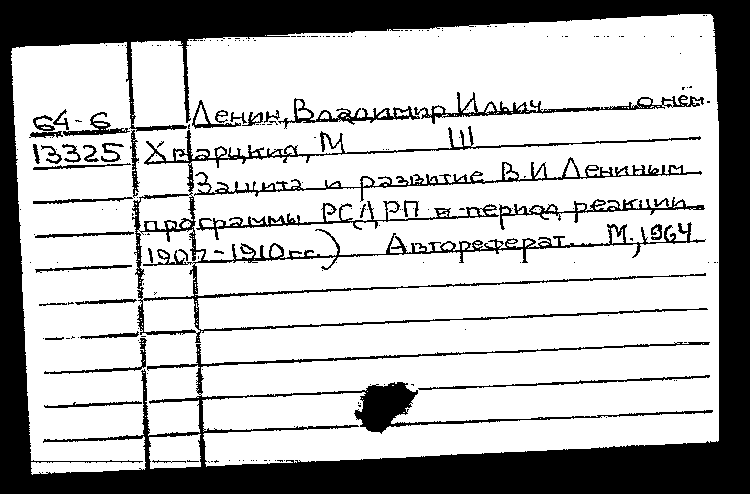 64-6 Ленин, Владимир Ильич о нём.
13325 Хварцкия, М III
Защита и развитие В.И Лениным
программы РСДРП в период реакции
(1907-1910гг.) Автореферат. М., 1964